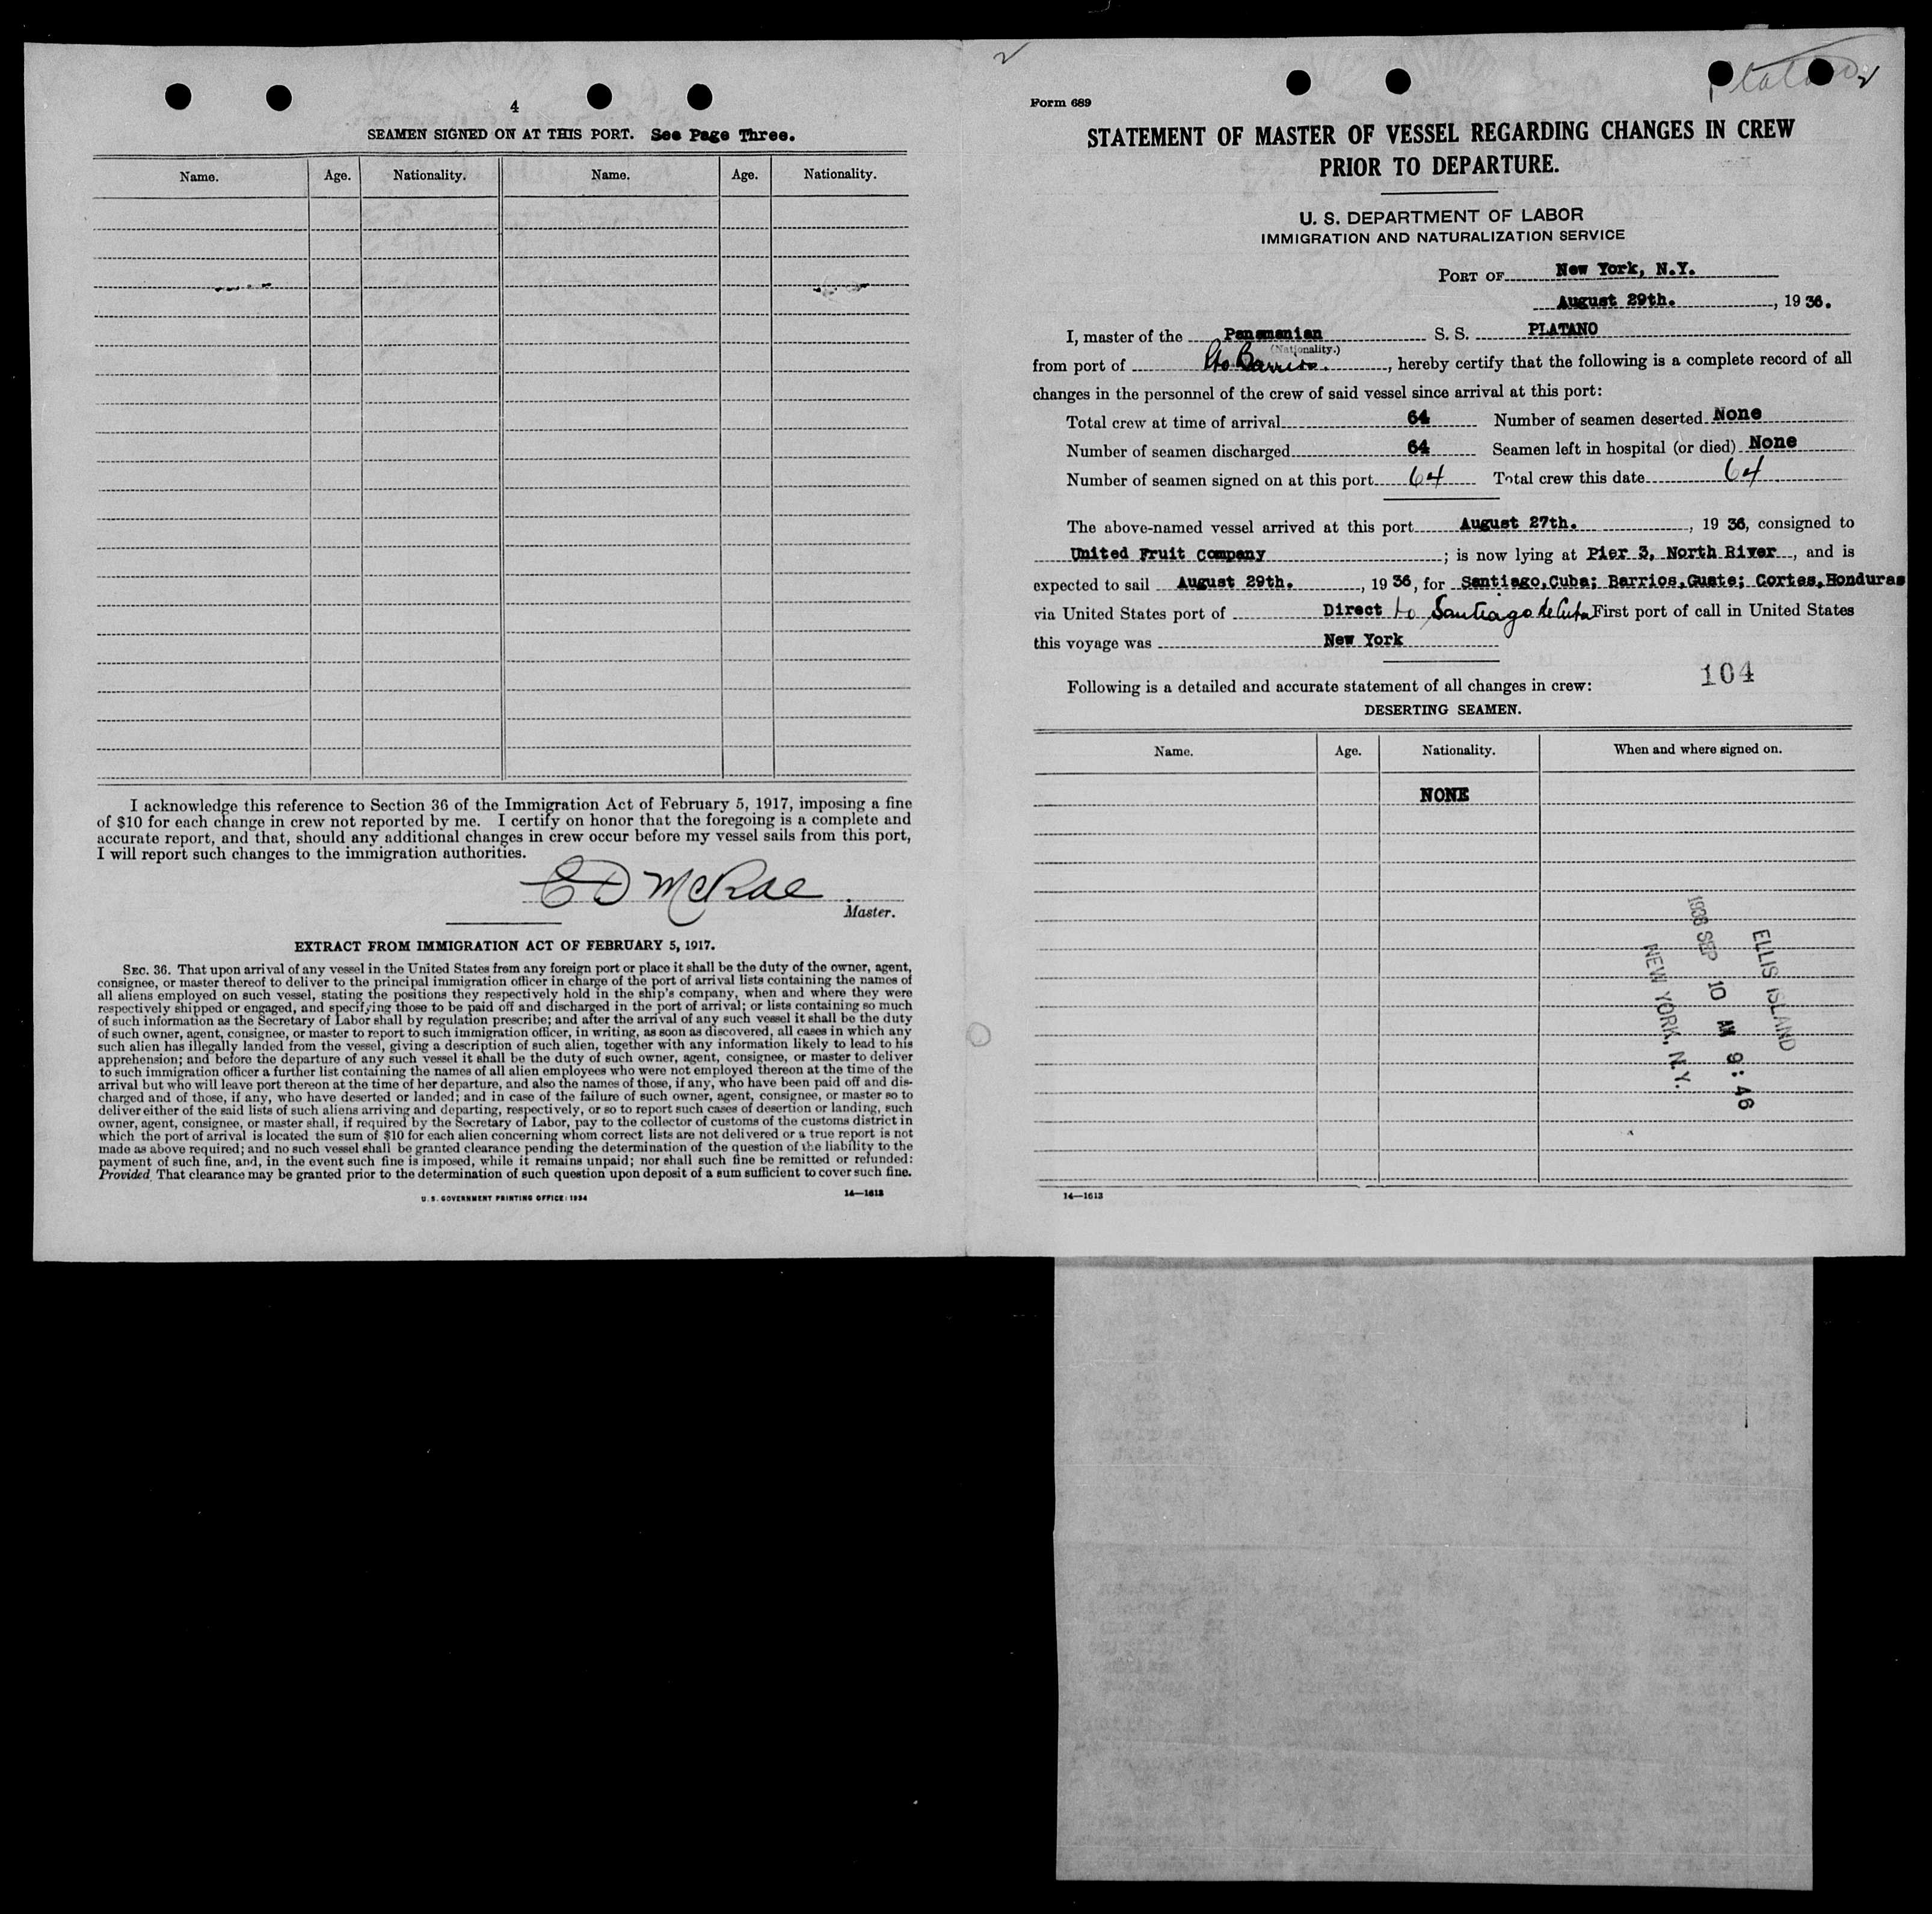 4
SEAMEN SIGNED ON AT THIS PORT. See Page Three.
Name. Age. Nationality. Name. Age. Nationality.
I acknowledge this reference to Section 36 of the Immigration Act of February 5, 1917, imposing a fine
of $10 for each change in crew not reported by me. I certify on honor that the foregoing is a complete and
accurate report, and that, should any additional changes in crew occur before my vessel sails from this port,
I will report such changes to the immigration authorities.
E D McRae
Master.
EXTRACT FROM IMMIGRATION ACT OF FEBRUARY 5, 1917.
SEC. 36. That upon arrival of any vessel in the United States from any foreign port or place it shall be the duty of the owner, agent,
consignee, or master thereof to deliver to the principal immigration officer in charge of the port of arrival lists containing the names of
all aliens employed on such vessel, stating the positions they respectively hold in the ship's company, when and where they were
respectively shipped or engaged, and specifying those to be paid off and discharged in the port of arrival; or lists containing so much
of such information as the Secretary of Labor shall by regulation prescribe; and after the arrival of any such vessel it shall be the duty
of such owner, agent, consignee, or master to report to such immigration officer, in writing, as soon as discovered, all cases in which any
such alien has illegally landed from the vessel, giving a description of such alien, together with any information likely to lead to his
apprehension; and before the departure of any such vessel it shall be the duty of such owner, agent, consignee, or master to deliver
to such immigration officer a further list containing the names of all alien employees who were not employed thereon at the time of the
arrival but who will leave port thereon at the time of her departure, and also the names of those, if any, who have been paid off and dis-
charged and of those, if any, who have deserted or landed; and in case of the failure of such owner, agent, consignee, or master so to
deliver either of the said lists of such aliens arriving and departing, respectively, or so to report such cases of desertion or landing, such
owner, agent, consignee, or master shall, if required by the Secretary of Labor, pay to the collector of customs of the customs district in
which the port of arrival is located the sum of $10 for each alien concerning whom correct lists are not delivered or a true report is not
made as above required; and no such vessel shall be granted clearance pending the determination of the question of the liability to the
payment of such fine, and, in the event such fine is imposed, while it remains unpaid; nor shall such fine be remitted or refunded:
Provided, That clearance may be granted prior to the determination of such question upon deposit of a sum sufficient to cover such fine.
U. S. GOVERNMENT PRINTING OFFICE: 1934 14—1613
Platano
Form 689
STATEMENT OF MASTER OF VESSEL REGARDING CHANGES IN CREW
PRIOR TO DEPARTURE.
U. S. DEPARTMENT OF LABOR
IMMIGRATION AND NATURALIZATION SERVICE
PORT OF New York, N.Y.
August 29th., 1936.
I, master of the Panamanian S. S. PLATANO
(Nationality.)
from port of Pto Barrios., hereby certify that the following is a complete record of all
changes in the personnel of the crew of said vessel since arrival at this port:
Total crew at time of arrival 64 Number of seamen deserted None
Number of seamen discharged 64 Seamen left in hospital (or died) None
Number of seamen signed on at this port 64 Total crew this date 64
The above-named vessel arrived at this port August 27th., 1936, consigned to
United Fruit Company; is now lying at Pier 3, North River, and is
expected to sail August 29th., 1936, for Santiago,Cuba; Barrios,Guate; Cortes,Honduras
via United States port of Direct to Santiago de Cuba First port of call in United States
this voyage was New York
104
Following is a detailed and accurate statement of all changes in crew:
DESERTING SEAMEN.
Name. Age. Nationality. When and where signed on.
NONE
ELLIS ISLAND
1936 SEP 10 AM 9:46
NEW YORK, N.Y.
14—1613